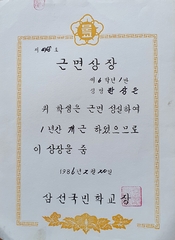 제 호
근면상장
제 6 학년 1 반
성명
위 학생은 근면 성실하여
1 년간 개근 하였으므로
이 상장을 줌
1986년 2월 20일
삼선국민학교장